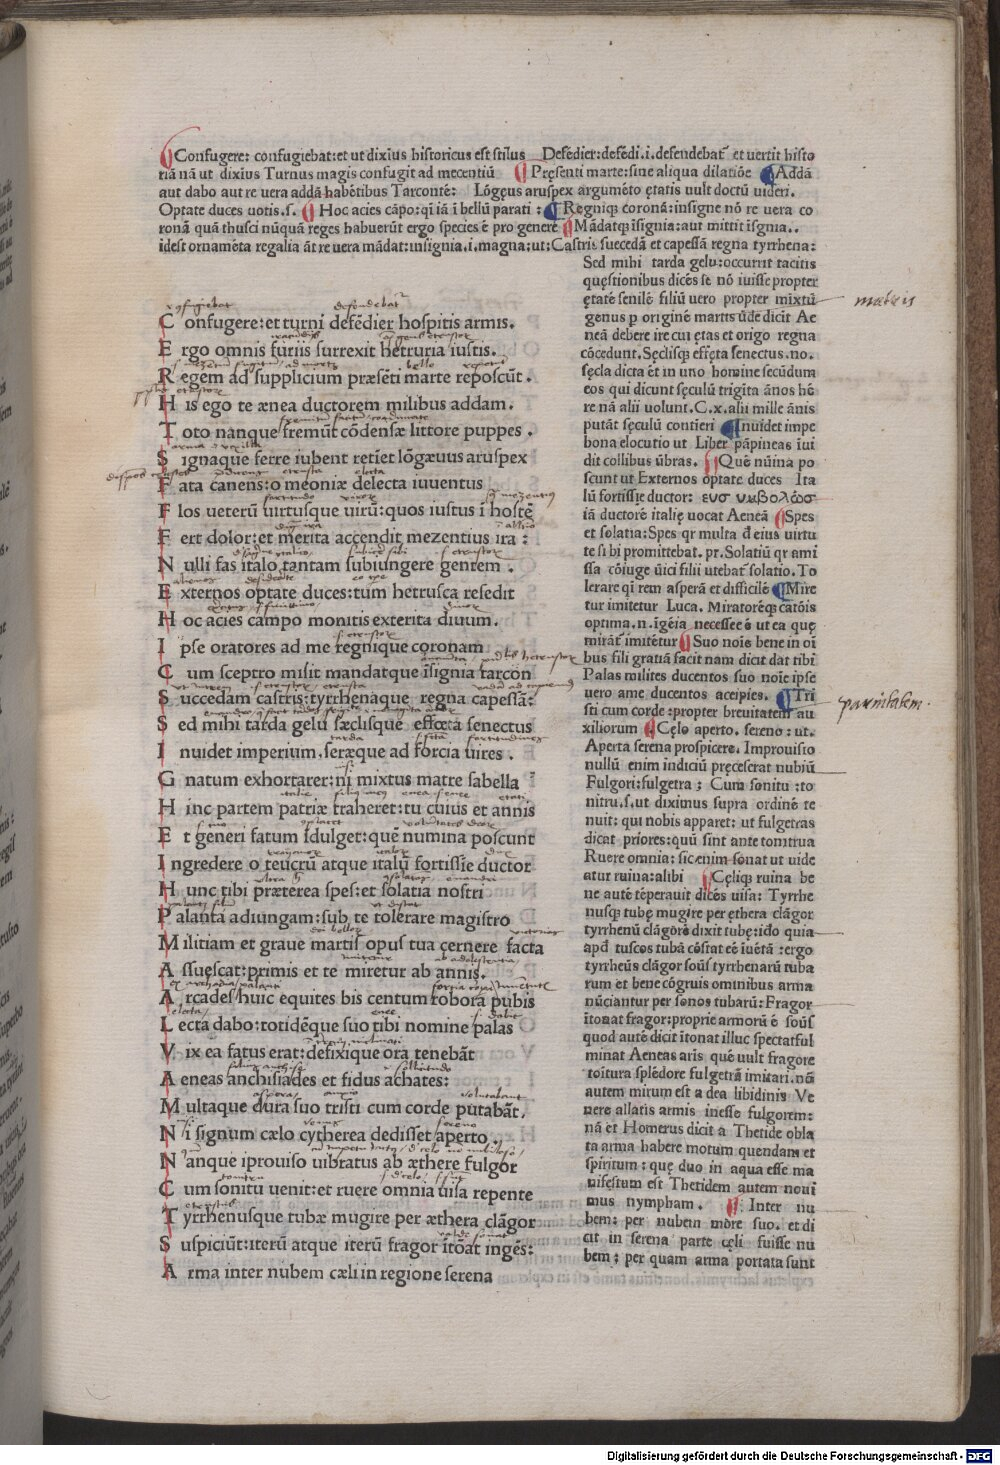 Confugere: confugiebat: et ut dixiɱus historicus est stilus Defēdier: defēdi.i.defendebat᷑ et uertit histo
riā nā ut dixiɱus Turnus magis confugit ad mecentiū Pręsenti marte: sine aliqua dilatiōe Addā
aut dabo aut re uera addā habētibus Tarconte: Lōgęus aruspex argumēto ętatis uult doctū uideri.
Optate duces uotis.s. Hoc acies cāpo: qī iā ī bellū parati: Regniqꝫ coronā: insigne nō re uera co
ronā quā thusci nūquā reges habuerūt ergo species ē pro genere Mādatqꝫ īsignia: aut mittit īsignia..
idest ornamēta regalia āt re uera mādat: insignia.i.magna; ut: Castris succedā et capessā regna tyrrhena:
C onfugere: et turni defēdier hospitis armis.
E rgo omnis furiis surrexit hetruria iustis.
R egem ad supplicium præsēti marte reposcūt.
H is ego te ænea ductorem milibus addam.
T oto nanque fremūt cōdensæ littore puppes.
S ignaque ferre iubent retiet lōgæuus aruspex
F ata canens: o meoniæ delecta iuuentus
F los ueterū uirtusque uirū: quos iustus ī hostē
F ert dolor: et merita accendit mezentius ira:
N ulli fas italo tantam subiungere gentem.
E xternos optate duces: tum hetrusca resedit
H oc acies campo monitis exterita diuum.
I pse oratores ad me regnique coronam
C um sceptro misit mandatque īsignia tarcon
S uccedam castris: tyrrhenaque regna capessā:
S ed mihi tarda gelu sæclisque effœta senectus
I nuidet imperium. seræque ad forcia uires.
G natum exhortarer: ni mixtus matre sabella
H inc partem patriæ traheret: tu cuius et annis
E t generi fatum īdulget: quē numina poscunt
I ngredere o teucrū atque italū fortissīe ductor
H unc tibi præterea spes: et solatia nostri
P alanta adiungam: sub te tolerare magistro
M ilitiam et graue martis opus tua cernere facta
A ssuescat: primis et te miretur ab annis.
A rcades huic equites bis centum robora pubis
L ecta dabo: totidēque suo tibi nomine palas
V ix ea fatus erat: defixique ora tenebāt
A eneas anchisiades et fidus achates:
M ultaque dura suo tristi cum corde putabāt.
N i signum cælo cytherea dedisset aperto.
N anque iprouiso uibratus ab æthere fulgor
C um sonitu uenit: et ruere omnia uisa repente
T yrrhenusque tubæ mugire per æthera clāgor
S uspiciūt: iterū atque iterū fragor ītōat ingēs:
A rma inter nubem cæli in regione serena
Sed mihi tarda gelu: occurrit tacitis
questionibus dicēs se nō iuisse propter
ętatē senilē filiū uero propter mixtū
genus p originē martis ūde dicit Ae
neā debere ire cui ętas et origo regna
cōcedunt. Sęclisqꝫ effęta senectus.no.
sęcla dicta ēt in uno homine secūdum
eos qui dicunt sęculū trigīta ānos hē
re nā alii uolunt.C.x.alii mille ānis
putāt sęculū contieri Inuidet impe
bona elocutio ut Liber pāpineas īui
dit collibus ūbras. Quē nūina po
scunt ut Externos optate duces Ita
lū fortissīe ductor:
iā ductorē italię uocat Aeneā Spes
et solatia: Spes qr multa đ eius uirtu
te si bi promittebat.pr.Solatiū qr ami
ssa cōiuge ūici filii utebat᷑ solatio. To
lerare qī rem asperā et difficilē Mire
tur imitetur Luca. Miratorēqꝫ catōis
optima.n.īgēia necesse ē ut ea quę
mirāt᷑ imitētur Suo noīe bene in oī
bus fili gratiā facit nam dicit dat tibi
Palas milites ducentos suo noīe ipse
uero ame ducentos aceipies. Tri
sti cum corde: propter breuitatem au
xiliorum Cęlo aperto. sereno: ut.
Aperta serena prospicere. Improuiso
nullū enim indiciū pręceserat nubiū
Fulgor: fulgetra; Cum sonitu: to
nitru.s.ut diximus supra ordinē te
nuit: qui nobis apparet: ut fulgetras
dicat priores: quū sint ante tonitrua
Ruere omnia: sic enim sonat ut uide
atur ruina: alibi Cęliqꝫ ruina be
ne autē tēperauit dicēs uisa: Tyrrhe
nusqꝫ tubę mugire per ęthera clāgor
tyrrhenū clāgorē dixit tubę: ido quia
apđ tuscos tubā cōstat eē īuētā: ergo
tyrrheūs clāgor soūs tyrrhenarū tuba
rum et bene cōgruis ominibus arma
nūciantur per sonos tubarū: Fragor
ītonat fragor: proprie armorū ē soūs
quod autē dicit ītonat illuc spectat ful
minat Aeneas aris quē uult fragore
toītura splēdore fulgetrā imitari. nā
autem mirum est a dea libidinis Ve
nere allatis armis inesse fulgorem:
nā et Homerus dicit a Thetide obla
ta arma habere motum quendam et
spiritum: quę duo in aqua esse ma
nifestum est Thetidem autem noui
mus nympham. Inter nu
bem: per nubem more suo. et di
cit in serena parte cęli fuisse nu
bem: per quam arma portata sunt
matris
paruitatem.
Digitalisierung gefördert durch die Deutsche Forschungsgemeinschaft - DFG